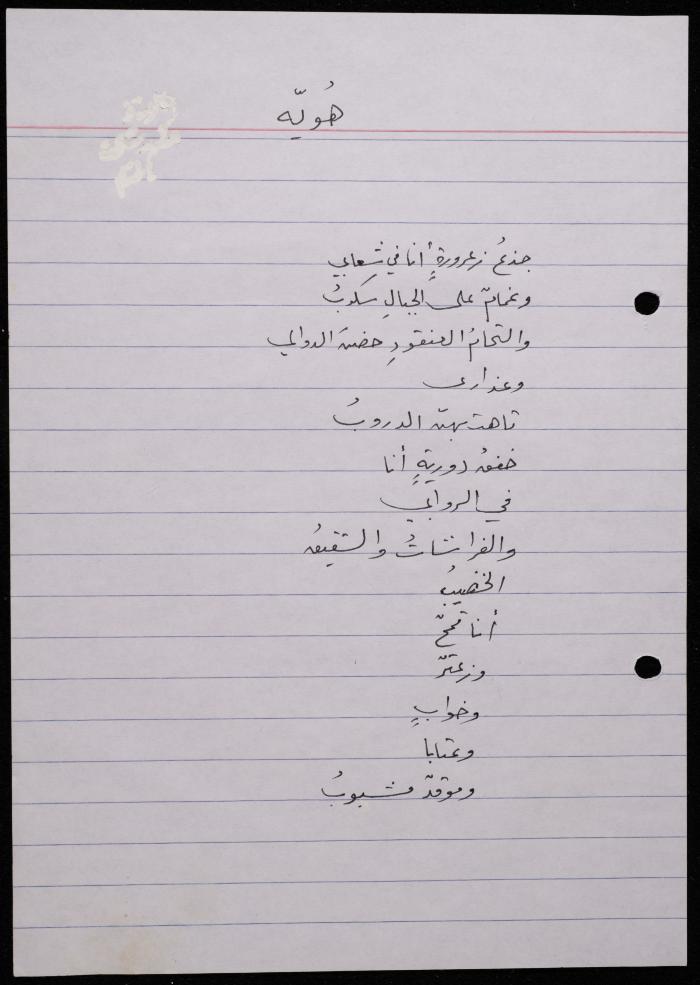 هُويّه
جذعُ زعرورةٍ أنا في شِعابي
وغمامٌ على الجبالِ سكوبُ
والتحامُ العنقودِ حضنَ الدوالي
وعذارى
تاهت بهنّ الدروبُ
خفقُ دوريّةٍ أنا
في الروابي
والفراشاتُ والشقيقُ
الخضيبُ
أنا قمحٌ
وزعترٌ
وخوابٍ
وعتابا
وموقدٌ مشبوبُ